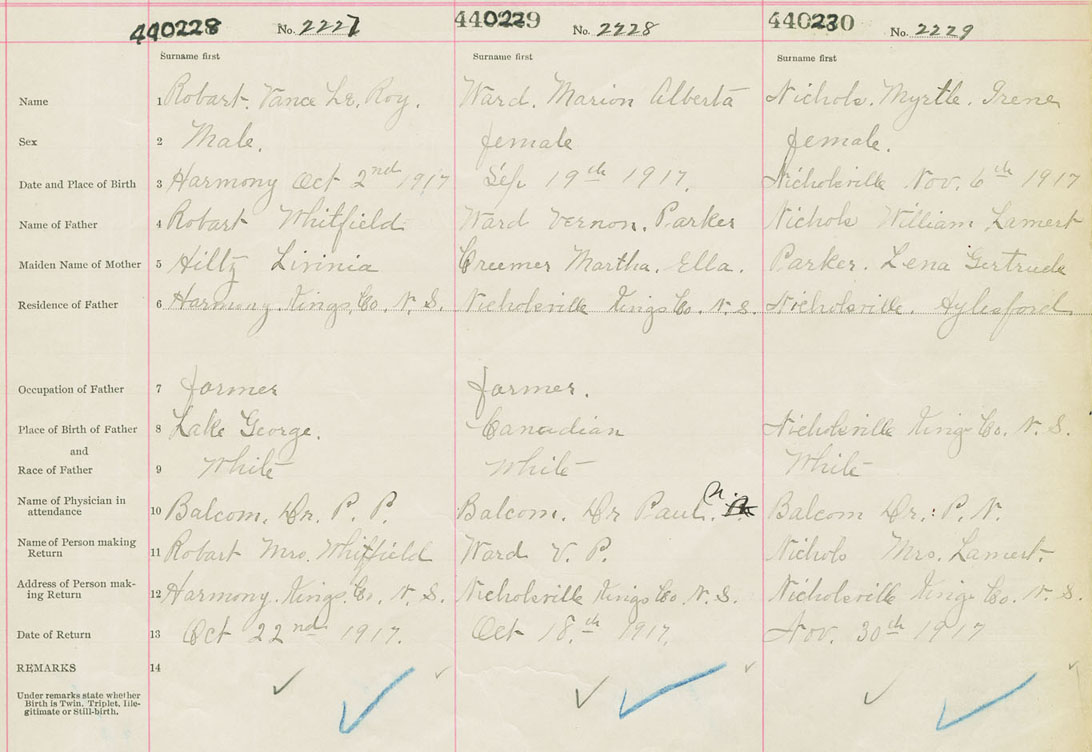 440228 No. 2227 440229 No. 2228 440230 No. 2229
Surname first Surname first Surname first
Name 1 Robart. Vance Le. Roy. Ward. Marion Alberta Nichols. Myrtle. Irene
Sex 2 Male. female female.
Date and Place of Birth 3 Harmony Oct 2nd 1917 Sep. 19th 1917. Nicholsville Nov. 6th 1917
Name of Father 4 Robart Whitfield Ward Vernon. Parker Nichols William Lamert
Maiden Name of Mother 5 Hiltz Livinia Creemer Martha. Ella. Parker. Lena Gertrude
Residence of Father 6 Harmony. Kings. Co. N. S. Nicholsville Kings Co. N. S. Nicholsville. Aylesford
Occupation of Father 7 farmer farmer.
Place of Birth of Father 8 Lake George. Canadian Nicholsville King Co. N. S.
and
Race of Father 9 White White White
Name of Physician in
attendance 10 Balcom. Dr. P. P. Balcom. Dr Paul. N. Balcom Dr.: P. N.
Name of Person making
Return 11 Robart Mrs. Whitfield Ward V. P. Nichols Mrs. Lamert.
Address of Person mak-
ing Return 12 Harmony. Kings. Co. N. S. Nicholsville Kings Co. N. S. Nicholsville King Co. N. S.
Date of Return 13 Oct 22nd 1917. Oct 18.th 1917. Nov. 30th 1917
REMARKS 14
Under remarks state whether
Birth is Twin, Triplet, Ille-
gitimate or Still-birth.